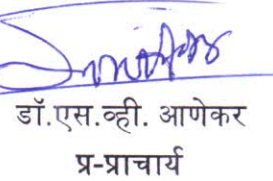 डॉ.एस.व्ही. आणेकर
प्र-प्राचार्य